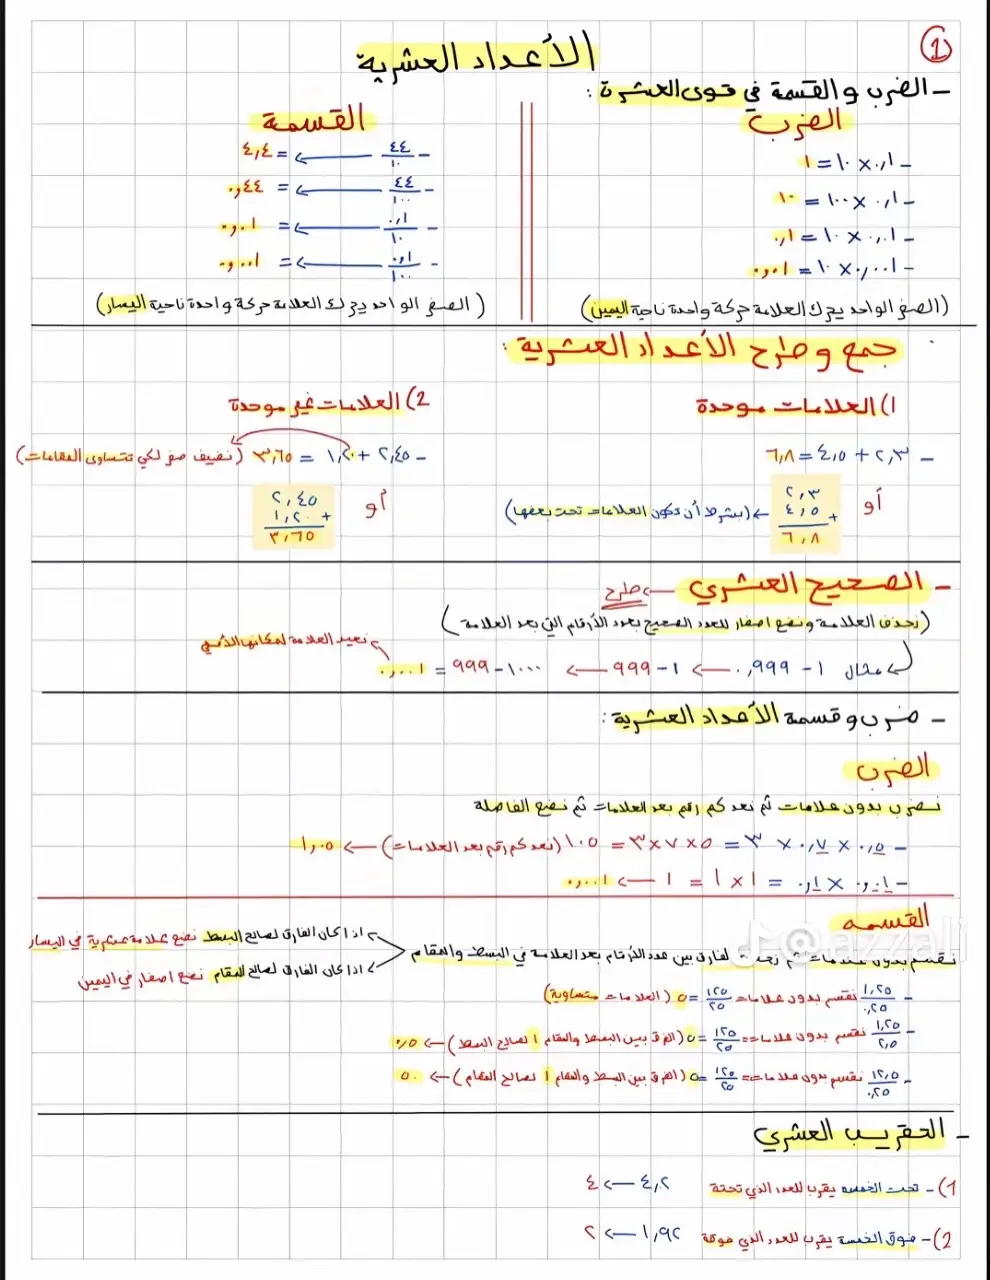 1
الأعداد العشرية
- الضرب والقسمة في قوى العشرة :
الضرب
- ٠,١ × ١٠ = ١
- ٠,١ × ١٠٠ = ١٠
- ٠,٠١ × ١٠ = ٠,١
- ٠,٠٠١ × ١٠ = ٠,٠١
(الصفر الواحد يحرك العلامة حركة واحدة ناحية اليمين)
القسمة
- ٤٤/١٠ ← = ٤,٤
- ٤٤/١٠٠ ← = ٠,٤٤
- ٠,١/١٠ ← = ٠,٠١
- ٠,١/١٠٠ ← = ٠,٠٠١
(الصفر الواحد يحرك العلامة حركة واحدة ناحية اليسار)
جمع و طرح الأعداد العشرية :
1) العلامات موحدة
- ٢,٣ + ٤,٥ = ٦,٨
أو
٢,٣
٤,٥ +
٦,٨
← (بشرط أن تكون العلامات تحت بعضها)
2) العلامات غير موحدة
- ٢,٤٥ + ١,٢٠ = ٣,٦٥ (نضيف صفر لكي تتساوى المقامات)
أو
٢,٤٥
١,٢٠ +
٣,٦٥
- الصحيح العشري ← طرح
(نحذف العلامة ونضع اصفار للعدد الصحيح بعدد الأرقام التي بعد العلامة)
نعيد العلامة لمكانها الأصلي
مثال ١ - ٠,٩٩٩ ← ١ - ٩٩٩ ← ١٠٠٠ - ٩٩٩ = ٠,٠٠١
- ضرب وقسمة الأعداد العشرية :
الضرب
نضرب بدون علامات ثم نعد كم رقم بعد العلامات ثم نضع الفاصلة
- ٠,٥ × ٠,٧ × ٣ = ٥ × ٧ × ٣ = ١٠٥ (نعد كم رقم بعد العلامات) ← ١,٠٥
- ٠,٠١ × ٠,١ = ١ × ١ = ١ ← ٠,٠٠١
القسمه
نقسم بدون علامات ثم الفارق بين عدد الأرقام بعد العلامة في البسط والمقام
اذا كان الفارق لصالح البسط نضع علامة عشرية في اليسار
اذا كان الفارق لصالح المقام نضع اصفار في اليمين
- ١,٢٥/٠,٢٥ نقسم بدون علامات = ١٢٥/٢٥ = ٥ (العلامات متساوية)
- ١,٢٥/٢,٥ نقسم بدون علامات = ١٢٥/٢٥ = ٥ (الفرق بين البسط والمقام ١ لصالح البسط) ← ٠,٥
- ١٢,٥/٠,٢٥ نقسم بدون علامات = ١٢٥/٢٥ = ٥ (الفرق بين البسط والمقام ١ لصالح المقام) ← ٥٠
@azzali
- التقريب العشري
1) - تحت الخمسه يقرب للعدد الذي تحتة ٤,٢ ← ٤
2) - فوق الخمسة يقرب للعدد الذي فوقة ١,٩٢ ← ٢